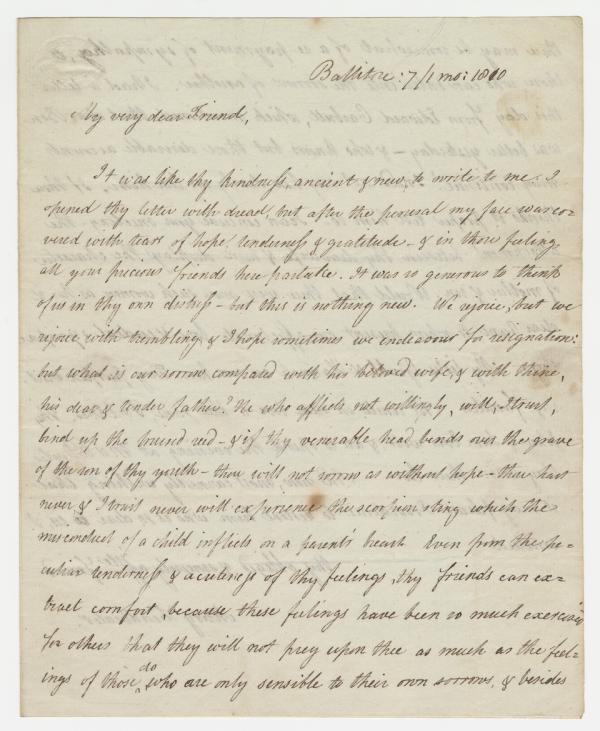 Ballitore: 7/1 mo: 1810
My very dear Friend,
It was like thy kindness, ancient & new to write to me. I
opened thy letter with dread, but after the perusal my face was co=
vered with tears of hope, tenderness & gratitude - & in those feelings
all your precious friends here partake. It was so generous to think
of us in thy own distress - but this is nothing new. We rejoice, but we
rejoice with trembling & I hope sometimes we endeavour for resignation:
but what is our sorrow compared with his beloved wife, & with thine,
his dear & tender father? He who afflicts not willingly, will, I trust,
bind up the bruised reed - & if thy venerable head bends over the grave
of the son of thy youth - thou will not sorrow as without hope - thou hast
never & I trust never will experience the scorpion sting which the
misconduct of a child inflicts on a parent's breast. Even from the pe=
culiar tenderness & acuteness of thy feelings, thy friends can ex=
tract comfort, because these feelings have been so much exercised
for others that they will not prey upon thee as much as the feel=
ings of those do who are only sensible to their own sorrows, & besides